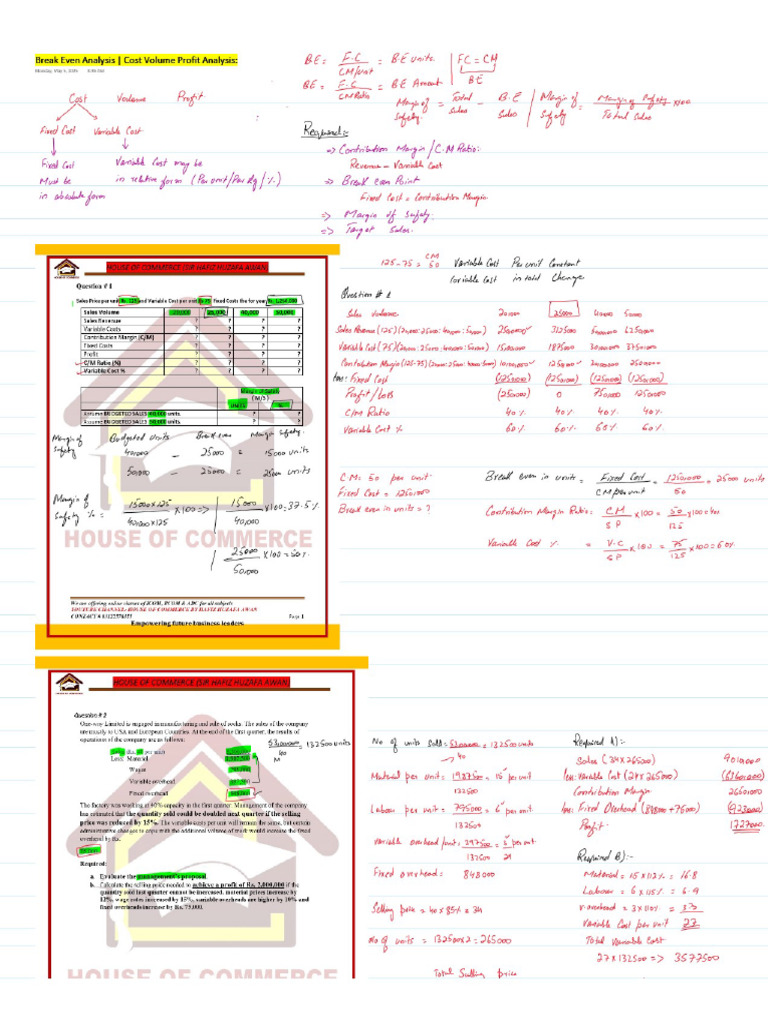 Break Even Analysis | Cost Volume Profit Analysis:
Cost Volume Profit
Fixed Cost Variable Cost
Fixed Cost
Must be
in absolute form
Variable Cost may be
in relative form (Per unit/Per Kg/%)
BE = F.C / CM/unit = BE units
BE = F.C / CM Ratio = BE Amount
FC = CM
BE
Margin of Safety = Total Sales - B.E Sales
Margin of Safety = Margin of Safety / Total Sales x100
Required:-
=> Contribution Margin / C.M Ratio:
Revenue - Variable Cost
=> Break even Point
Fixed Cost = Contribution Margin
=> Margin of Safety.
=> Target Sales.
HOUSE OF COMMERCE (SIR HAFIZ HUZAFA AWAN
Question # 1
Sales Price per unit Rs. 125 and Variable Cost per unit Rs 75 Fixed Costs the for year Rs. 1,250,000
Sales Volume 20,000 25,000 40,000 50,000
Sales Revenue ? ? ? ?
Variable Costs ? ? ? ?
Contribution Margin (C/M) ? ? ? ?
Fixed Costs ? ? ? ?
Profit ? ? ? ?
C/M Ratio (%) ? ? ? ?
Variable Cost % ? ? ? ?
Margin of Safety
(M/S)
UNITS %
Assume BUDGETED SALES 40,000 units. ? ?
Assume BUDGETED SALES 50,000 units. ? ?
Margin of Safety
Budgeted Units Break even Margin Safety.
40,000 - 25000 = 15000 units
50,000 - 25000 = 25000 units
Margin of Safety % = 15000x125 / 40,000x125 x100 =>
15000 / 40,000 x100 = 37.5%
25000 / 50,000 x100 = 50%
HOUSE OF COMMERCE
We are offering online classes of ICOM, BCOM & ADC for all subjects
YOUTUBE CHANNEL: HOUSE OF COMMERCE BY HAFIZ HUZAFA AWAN
Page 1
Empowering future business leaders
125-75 = CM 50
Variable Cost Per unit Constant
Variable Cost in total Change
Question # 1
Sales Volume 20,000 25000 40,000 50,000
Sales Revenue (125)(20,000:25000:40,000:50000) 2500,000 3125000 5000,000 6250000
Variable Cost (75)(20000:25000:40000:50000) 1500,000 1875000 3000,000 3750000
Contribution Margin (125-75)(20000:25000:40000:50000) 1000,000 1250,000 2000,000 2500000
less: Fixed Cost (1250,000) (1250,000) (1250,000) (1250,000)
Profit/Loss (250,000) 0 750,000 1250,000
C/M Ratio 40% 40% 40% 40%
Variable Cost % 60% 60% 60% 60%
CM = 50 per unit
Fixed Cost = 1250,000
Break even in units = ?
Break even in units = Fixed Cost / CM per unit = 1250,000 / 50 = 25000 units
Contribution Margin Ratio: CM / SP x100 = 50 / 125 x100 = 40%
Variable Cost % = V.C / SP x100 = 75 / 125 x100 = 60%
HOUSE OF COMMERCE (SIR HAFIZ HUZAFA AWAN)
Question # 2
One-way Limited is engaged in manufacturing and sale of socks. The sales of the company
are mostly to USA and European Countries. At the end of the first quarter, the results of
operations of the company are as follows:
Sales
Less: Material 1,987,500
Wages 795,000
Variable overhead 397,500
Fixed overhead 848,000
5300,000 / 40 = 132500 units
The factory was working at 40% capacity in the first quarter. Management of the company
has estimated that the quantity sold could be doubled next quarter if the selling
price was reduced by 15%. The variable costs per unit will remain the same, but certain
administrative changes to cope with the additional volume of work would increase the fixed
overhead by Rs.
Required:
a. Evaluate the management's proposal.
b. Calculate the selling price needed to achieve a profit of Rs. 2,000,000 if the
quantity sold last quarter cannot be increased, material prices increase by
12%, wage rates increased by 15%, variable overheads are higher by 10% and
fixed overheads increase by Rs. 75,000.
HOUSE OF COMMERCE
No of units Sold = 5300,000 / 40 = 132500 units
Material per unit = 1987500 / 132500 = 15 per unit
Labour per unit = 795000 / 132500 = 6 per unit
Variable overhead/unit = 397500 / 132500 = 3 per unit
Fixed overhead = 848,000
Selling price = 40 x 85% = 34
No of units = 132500x2 = 265000
Total Selling price
Required A):-
Sales (34x265000) 9010,000
less: Variable Cost (24x265000) (6360,000)
Contribution Margin 2650,000
less: Fixed Overhead (848,000+75000) (923000)
Profit 1727000.
Required B):-
Material = 15x112% = 16.8
Labour = 6x115% = 6.9
V.overhead = 3x110% = 3.3
Variable Cost per unit 27
Total Variable Cost
27x132500 => 3577500